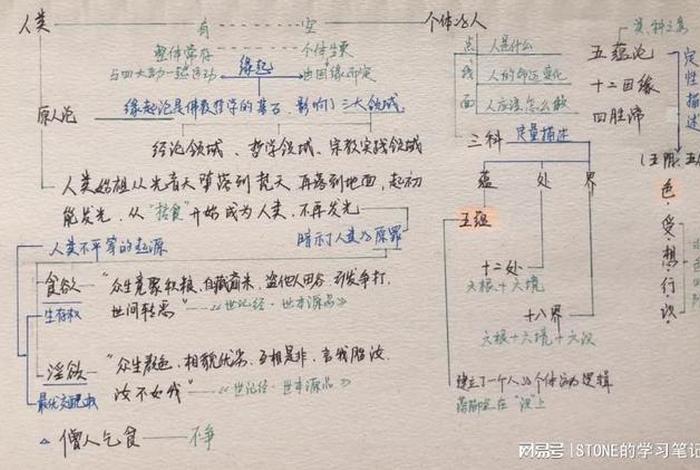 人类 有 空 个体的人
整体常存 个体生灭
与四大劫一起运动 缘起 由因缘而定
原人论
缘起论是佛教哲学的基石，影响了三大领域
经论领域、哲学领域、宗教实践领域
人类始祖从光音天堕落到梵天 再落到地面，起初
能发光，从“搭食”开始成为人类，不再发光
人类不平等的起源 暗示了人类的原罪
食欲 “众生竞聚积粮，自藏商米，盗他人田谷，引发争打，
生存权 世间转恶” 《世记经·世本源品》
淫欲 “众生着色，相貌优劣，互相是非，言我胜汝，
最优交配权 汝不如我” 《世记经·世本源品》
僧人乞食 不争
点 人是什么
线 人的命运变化
面 人应该怎么做
五蕴论
十二因缘
四胜谛
定性描述
三科 定量描述
蕴 处 界
五蕴
十二处
六根+六境
十八界
六根+六境+六识
建立了一个人的个体的逻辑
落脚点在“识”上
色·受·想·行·识
网易号 | STONE的学习笔记